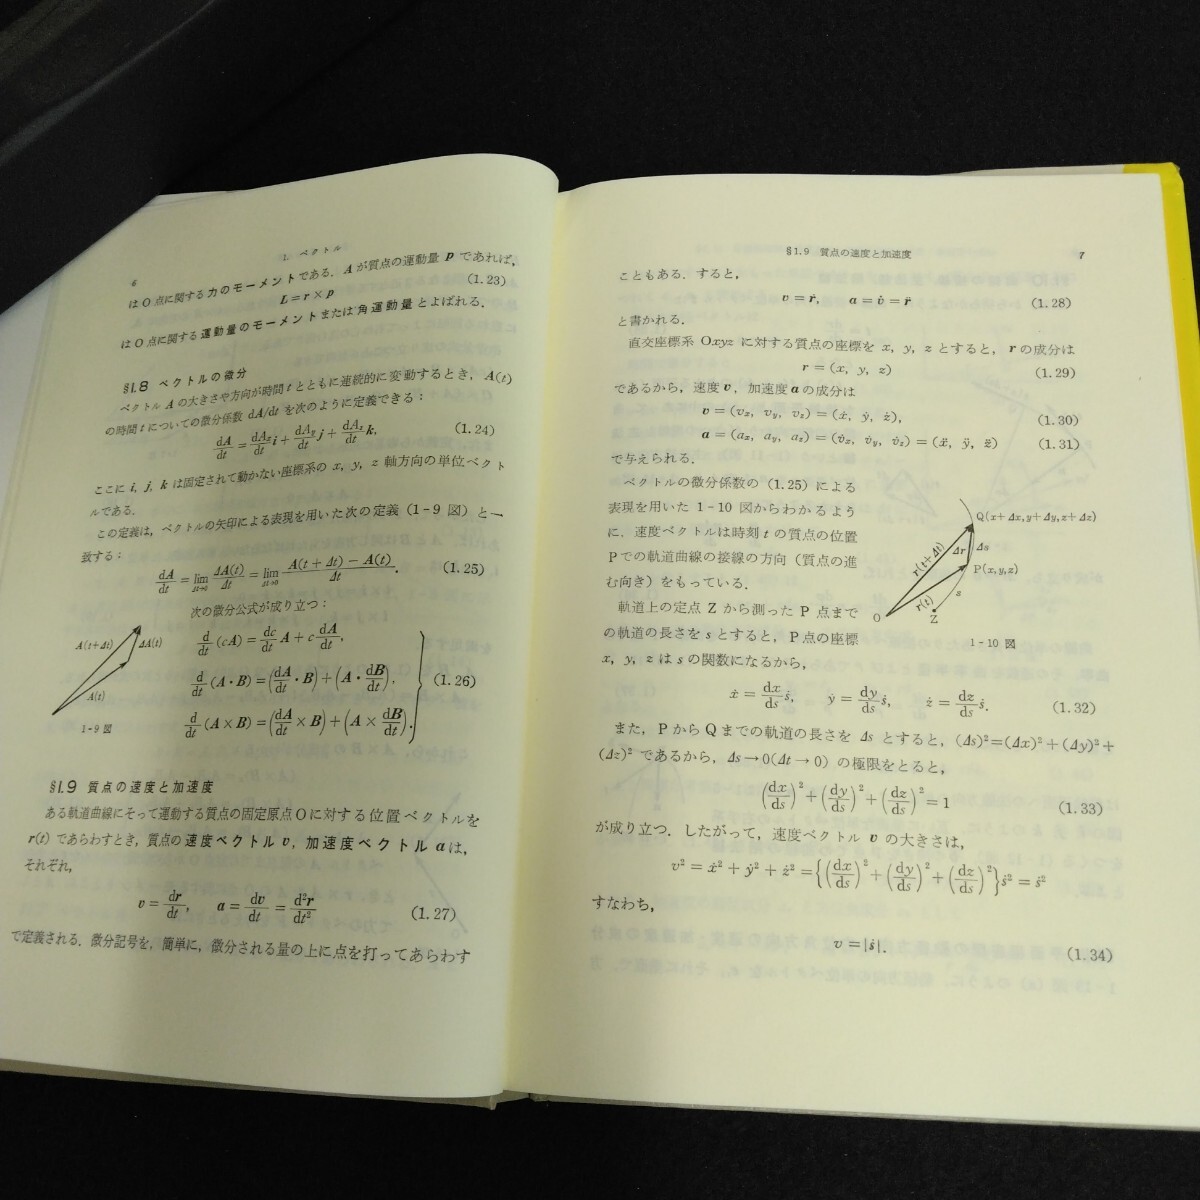 6
1. ベクトル
は O 点に関する力のモーメントである. A が質点の運動量 p であれば,
L=r×p (1.23)
は O 点に関する運動量のモーメントまたは角運動量とよばれる.
§1.8 ベクトルの微分
ベクトル A の大きさや方向が時間 t とともに連続的に変動するとき, A(t)
の時間 t についての微分係数 dA/dt を次のように定義できる:
dA/dt = dAx/dt i + dAy/dt j + dAz/dt k. (1.24)
ここに i, j, k は固定されて動かない座標系の x, y, z 軸方向の単位ベクト
ルである.
この定義は, ベクトルの矢印による表現を用いた次の定義 (1-9 図) と一
致する:
dA/dt = lim Δt→0 ΔA(t)/Δt = lim Δt→0 (A(t+Δt)−A(t))/Δt. (1.25)
次の微分公式が成り立つ:
d/dt (cA) = dc/dt A + c dA/dt,
d/dt (A・B) = (dA/dt・B) + (A・dB/dt),
d/dt (A×B) = (dA/dt×B) + (A×dB/dt).
(1.26)
A(t+Δt)
ΔA(t)
A(t)
1-9 図
§1.9 質点の速度と加速度
ある軌道曲線にそって運動する質点の固定原点 O に対する位置ベクトルを
r(t) であらわすとき, 質点の速度ベクトル v, 加速度ベクトル a は,
それぞれ,
v = dr/dt, a = dv/dt = d²r/dt² (1.27)
で定義される. 微分記号を, 簡単に, 微分される量の上に点を打ってあらわす
§1.9 質点の速度と加速度
7
こともある. すると,
v=ṙ, a=v̇=r̈ (1.28)
と書かれる.
直交座標系 Oxyz に対する質点の座標を x, y, z とすると, r の成分は
r=(x, y, z) (1.29)
であるから, 速度 v, 加速度 a の成分は
v=(vx, vy, vz)=(ẋ, ẏ, ż), (1.30)
a=(ax, ay, az)=(v̇x, v̇y, v̇z)=(ẍ, ÿ, z̈) (1.31)
で与えられる.
ベクトルの微分係数の (1.25) による
表現を用いた 1-10 図からわかるよう
に, 速度ベクトルは時刻 t の質点の位置
P での軌道曲線の接線の方向 (質点の進
む向き) をもっている.
軌道上の定点 Z から測った P 点まで
の軌道の長さを s とすると, P 点の座標
x, y, z は s の関数になるから,
Q(x+Δx,y+Δy,z+Δz)
Δs
Δr
r(t+Δt)
P(x,y,z)
r(t)
s
O
Z
1-10 図
ẋ = dx/ds ṡ, ẏ = dy/ds ṡ, ż = dz/ds ṡ. (1.32)
また, P から Q までの軌道の長さを Δs とすると, (Δs)²=(Δx)²+(Δy)²+
(Δz)² であるから, Δs→0(Δt→0) の極限をとると,
(dx/ds)² + (dy/ds)² + (dz/ds)² = 1 (1.33)
が成り立つ. したがって, 速度ベクトル v の大きさは,
v² = ẋ² + ẏ² + ż² = {(dx/ds)² + (dy/ds)² + (dz/ds)²}ṡ² = ṡ²
すなわち,
v=|ṡ|. (1.34)